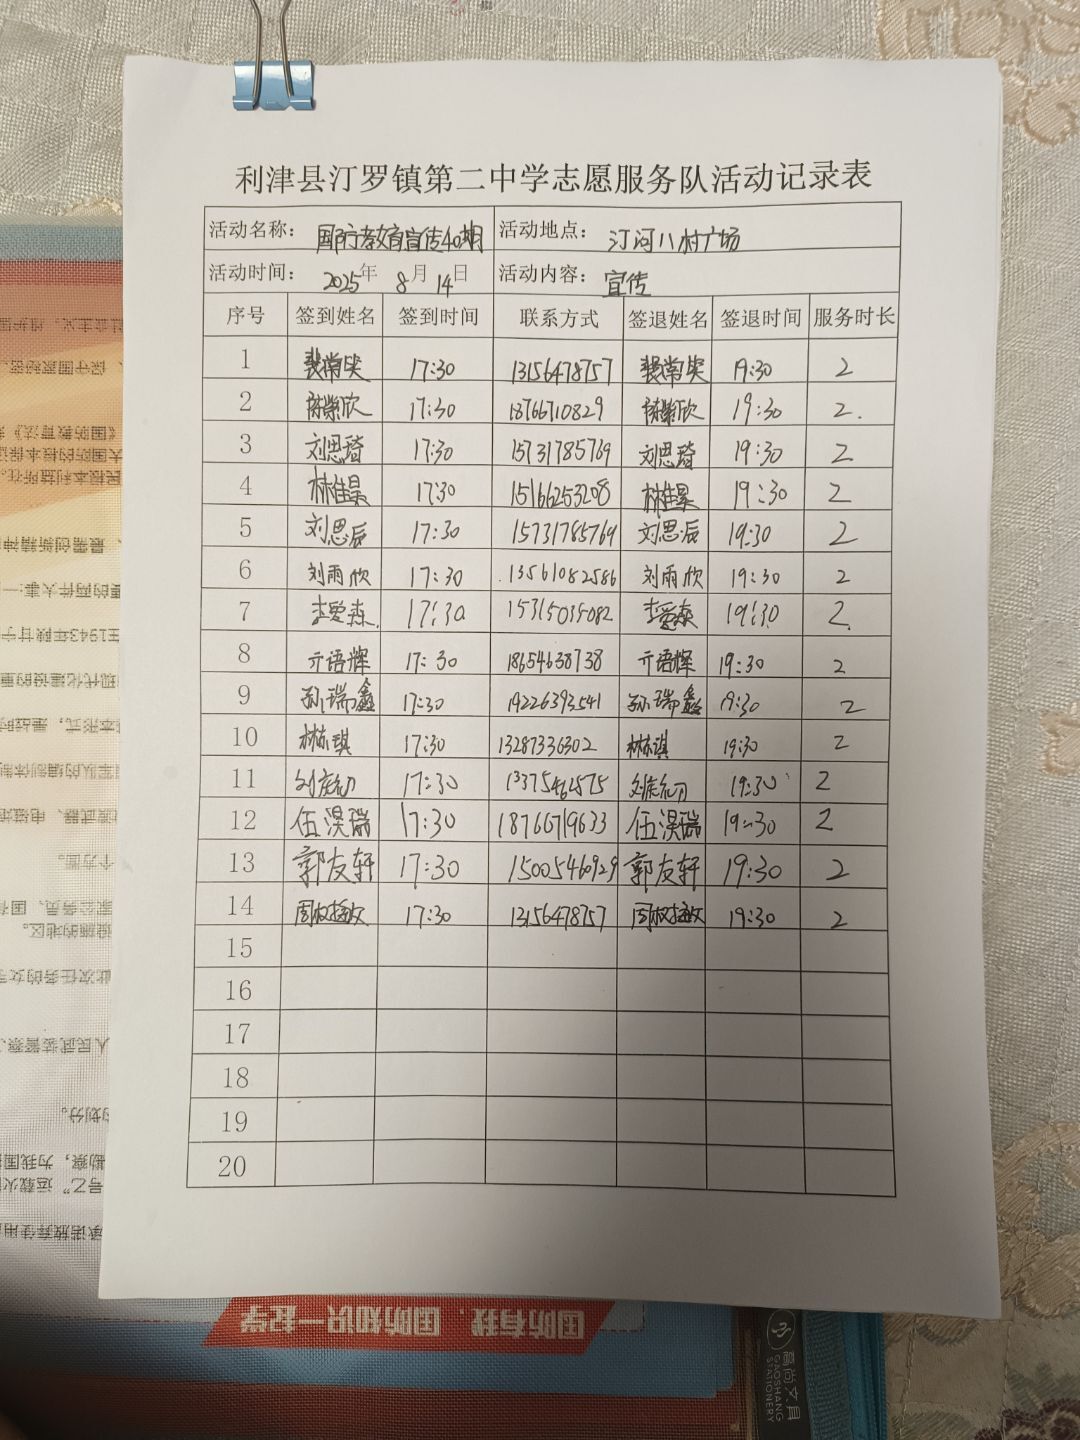 利津县汀罗镇第二中学志愿服务队活动记录表
活动名称： 国防教育宣传40期 活动地点： 汀河八村广场
活动时间： 2025年 8月 14日 活动内容： 宣传
序号 签到姓名 签到时间 联系方式 签退姓名 签退时间 服务时长
1 17:30 13156478757 19:30 2
2 陈紫欣 17:30 18766710829 陈紫欣 19:30 2.
3 刘思琦 17:30 15731785769 刘思琦 19:30 2
4 林佳昊 17:30 15166253208 林佳昊 19:30 2
5 刘思辰 17:30 15731785769 刘思辰 19:30 2
6 刘雨欣 17:30 13561082586 刘雨欣 19:30 2
7 李爱森 17:30 15315035082 李爱森 19:30 2.
8 亓语辉 17:30 18654638738 亓语辉 19:30 2
9 孙瑞鑫 17:30 19226393541 孙瑞鑫 19:30 2
10 林琪 17:30 13287336302 林琪 19:30 2
11 17:30 13375462575 19:30 2
12 伍淏瑞 17:30 18766719633 伍淏瑞 19:30 2
13 郭友轩 17:30 15005460929 郭友轩 19:30 2
14 17:30 13156478757 19:30 2
15
16
17
18
19
20
国防有我，国防知识一起学
高尚文具
GAOSHANG
STATIONERY